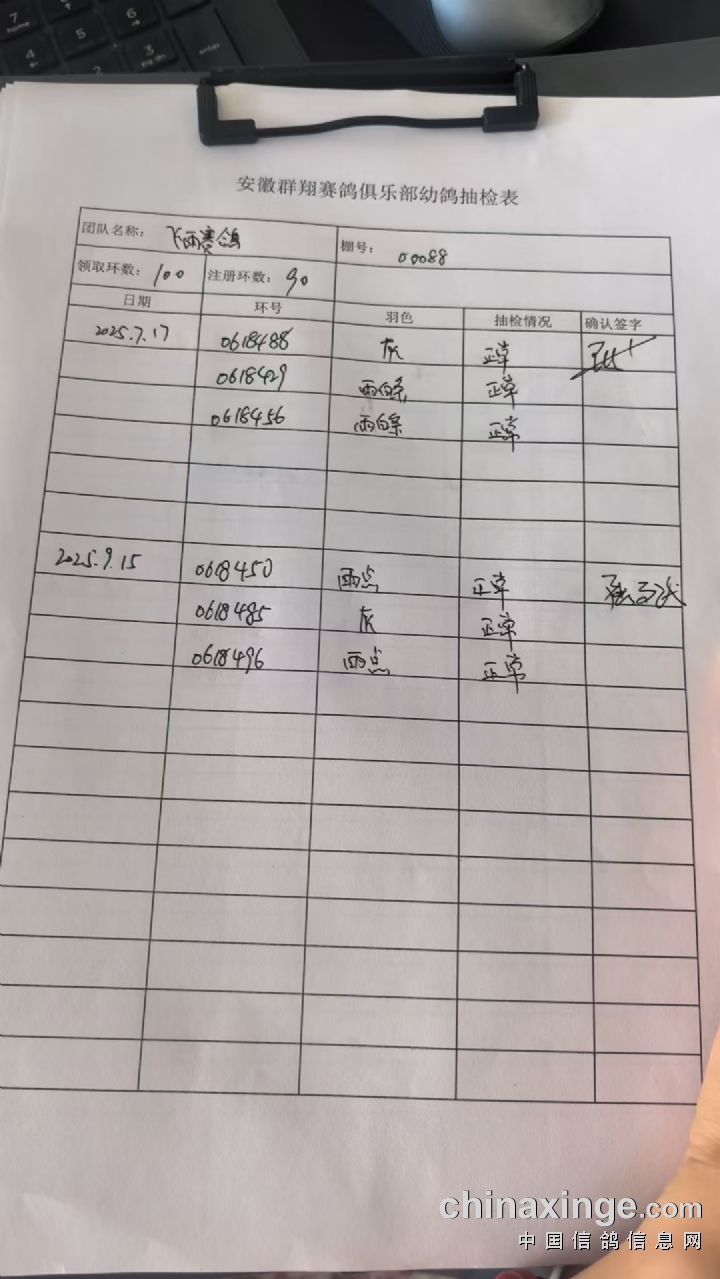 安徽群翔赛鸽俱乐部幼鸽抽检表
团队名称： 飞雨赛鸽 棚号： 00088
领取环数： 100 注册环数： 90
日期 环号 羽色 抽检情况 确认签字
2025.7.17 0618488 灰 正常
0618429 雨白条 正常
0618456 雨白条 正常
2025.9.15 0618450 雨点 正常
0618485 灰 正常
0618496 雨点 正常
chinaxinge.com
中国信鸽信息网